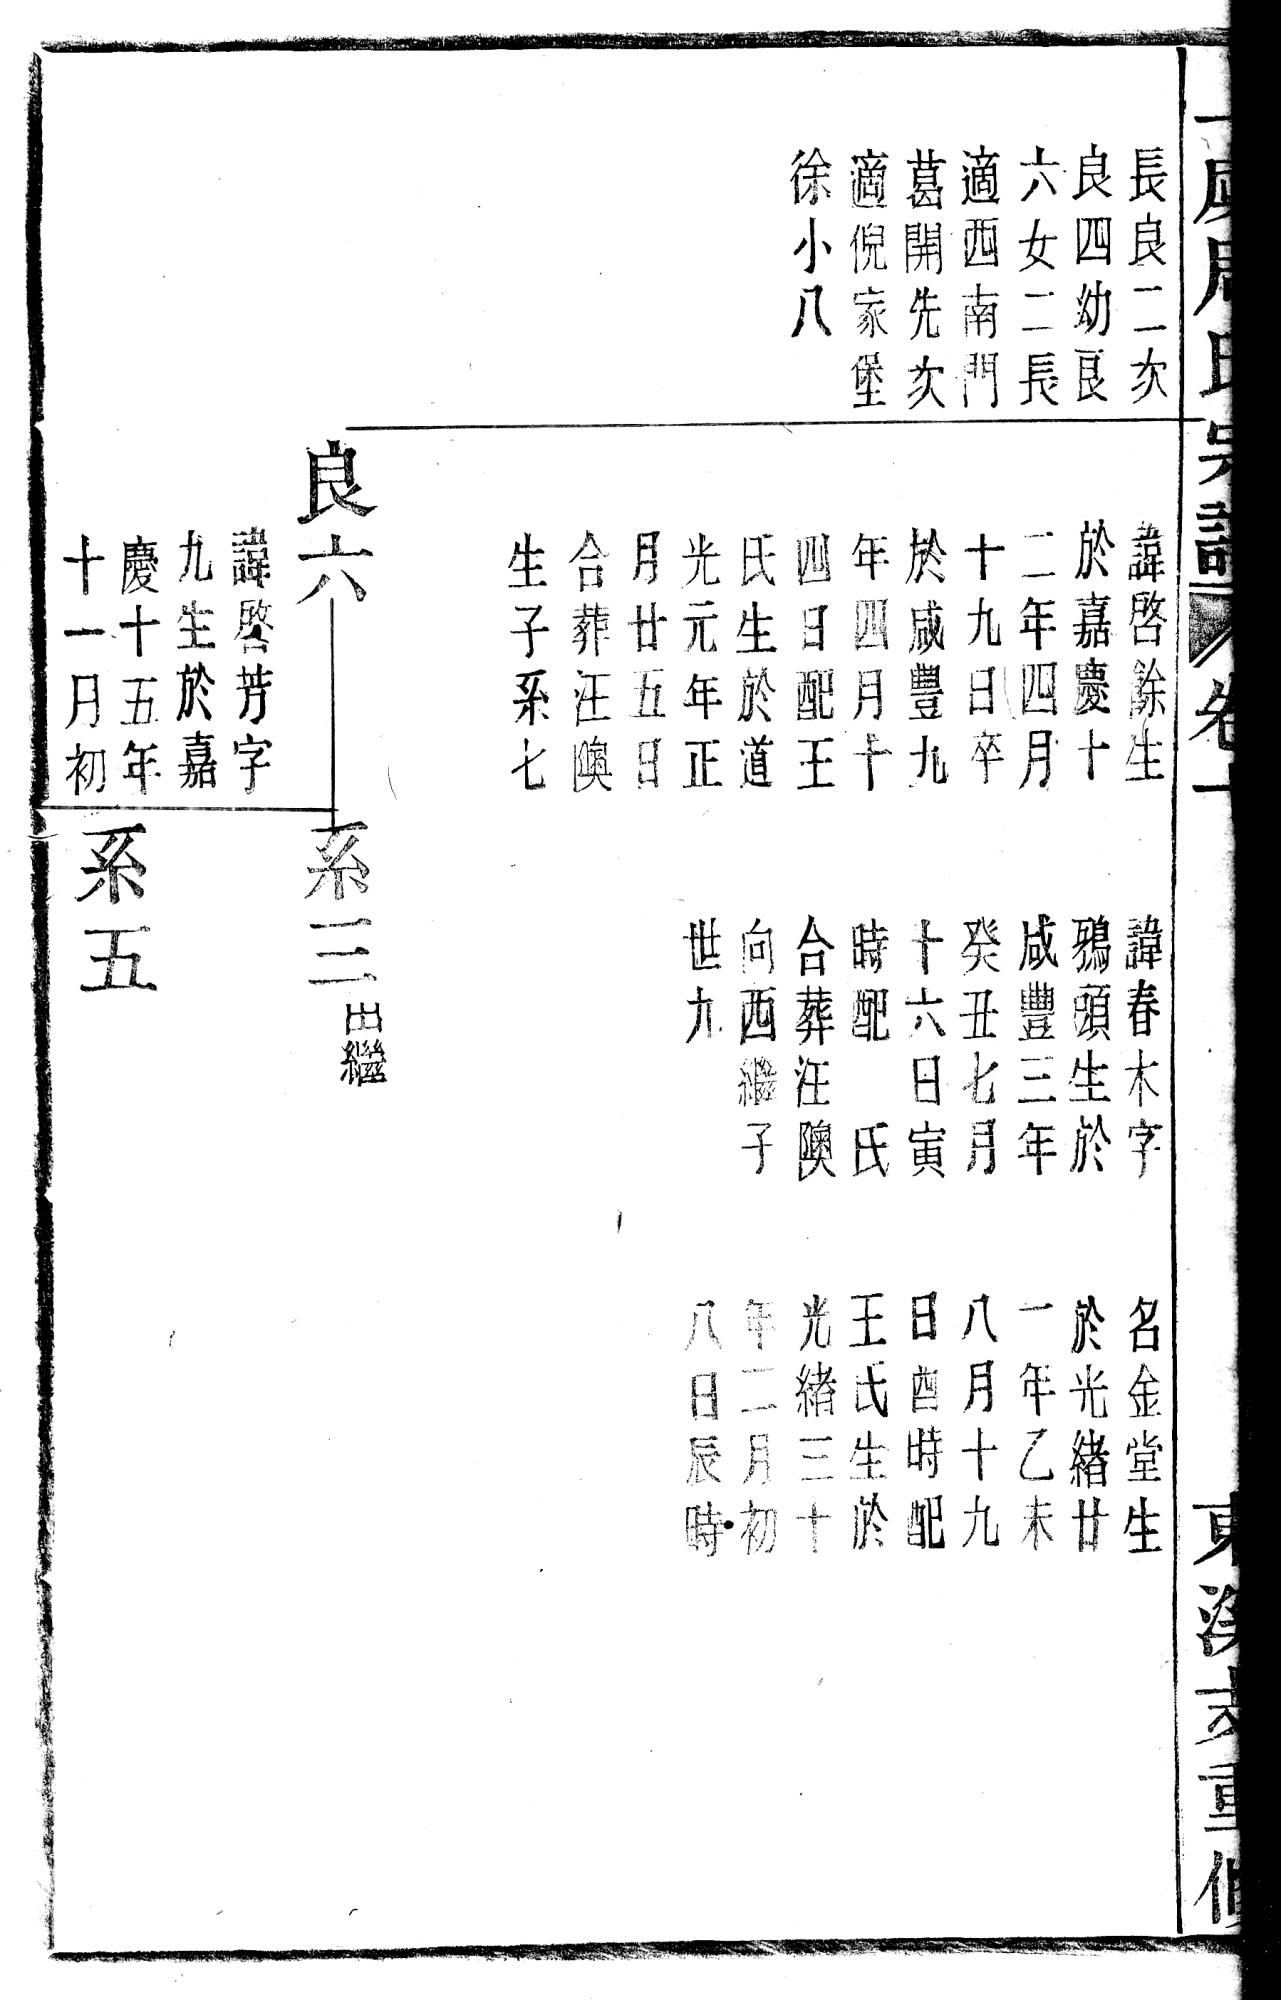 長良二次
良四幼良
六女二長
適西南門
葛開先次
適倪家堡
徐小八
諱啓餘生
於嘉慶十
二年四月
十九日卒
於咸豐九
年四月十
四日配王
氏生於道
光元年正
月廿五日
合葬汪隩
生子系七
良六
諱啓芳字
九生於嘉
慶十五年
十一月初
諱春木字
鴉頭生於
咸豐三年
癸丑七月
十六日寅
時配 氏
合葬汪隩
向西繼子
世九
系三
出繼
系五
名金堂生
於光緒廿
一年乙未
八月十九
日酉時配
王氏生於
光緒三十
年二月初
八日辰時